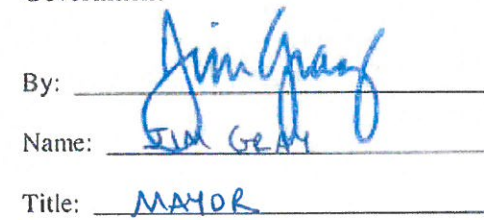 By: Jim Gray
Name: JIM GRAY
Title: MAYOR